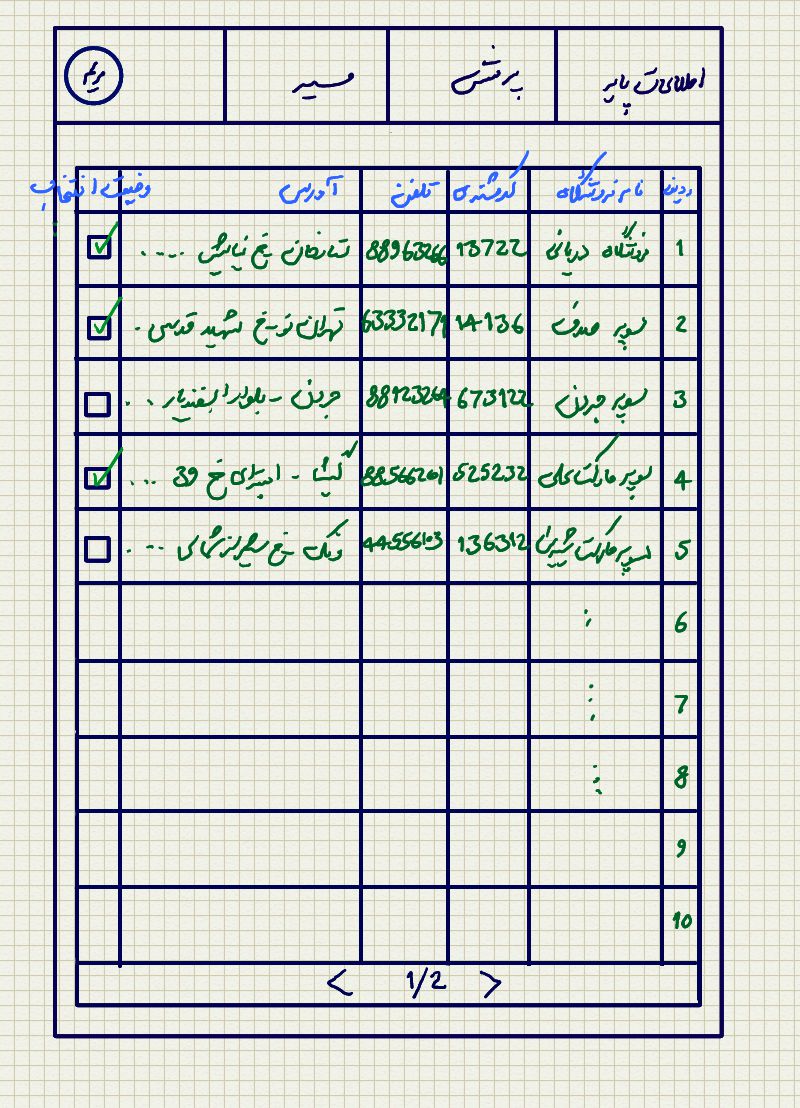 اطلاعات پایه پرفروش مسیر مریم
ردیف نام فروشگاه کدمشتری تلفن آدرس وضعیت انتخاب
1 فروشگاه دریانی 13722 88963266 ستارخان خ نیایش ....
2 سوپر صدف 14136 63332171 تهران نو - خ شهید قدسی .
3 سوپر جردن 673122 88923264 جردن - بلوار اسفندیار ...
4 سوپر مارکت علی 525232 88566261 گیشا - ابتدای خ 39 ...
5 سوپر مارکت شیرازی 136312 44556103 ونک - خ شیراز شمالی ...
6 :
7 :
8 :
9
10
< 1/2 >